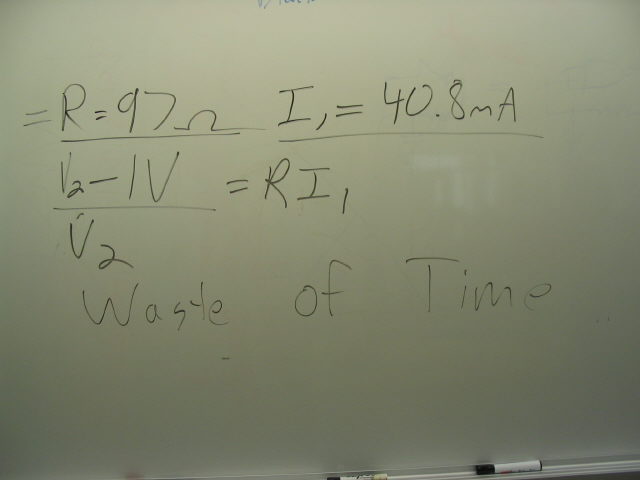 = R = 97Ω I₁ = 40.8mA
V₂ - 1V = RI₁
V₂
Waste of Time